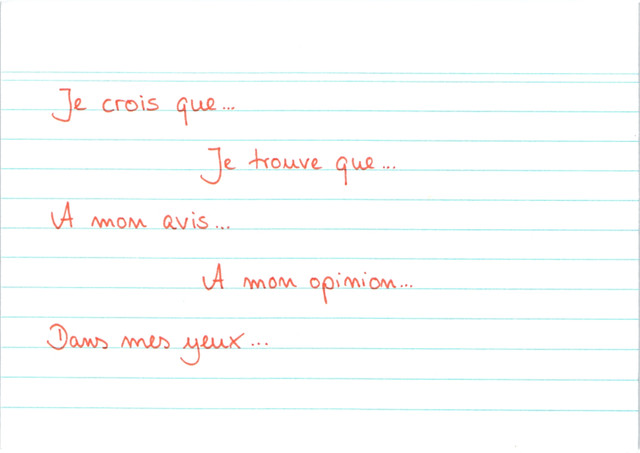 Je crois que...
Je trouve que...
A mon avis...
A mon opinion...
Dans mes yeux...